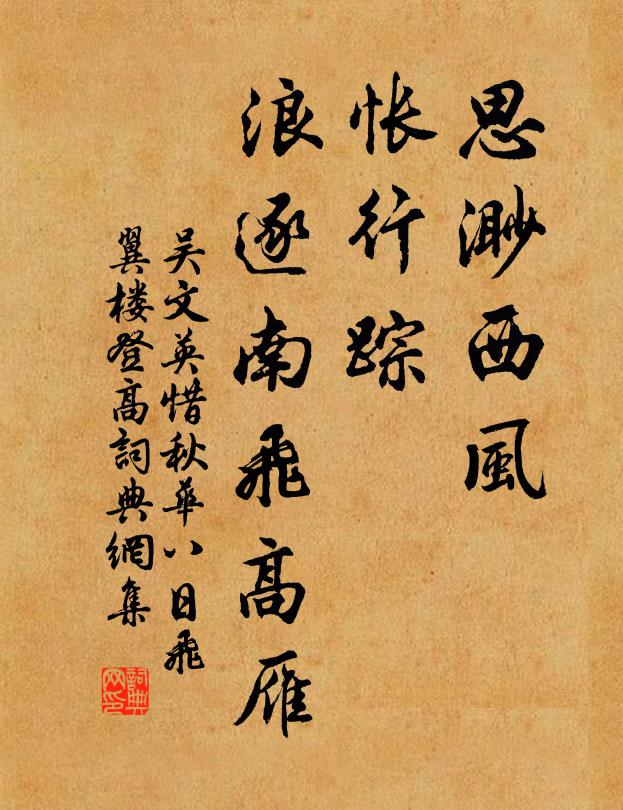 思渺西風
怅行踪
浪逐南飛高雁
吴文英惜秋華八日飛
翼楼登高詞典網集
詞典
网印